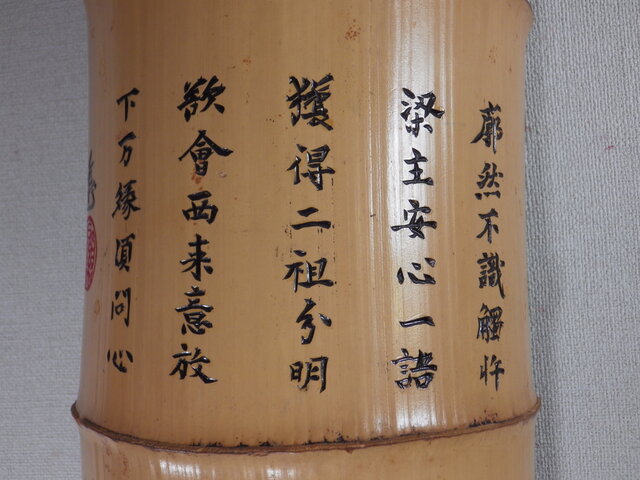 廓然不識觸忤
梁主安心一語
獲得二祖分明
欲會西来意放
下万縁須問心